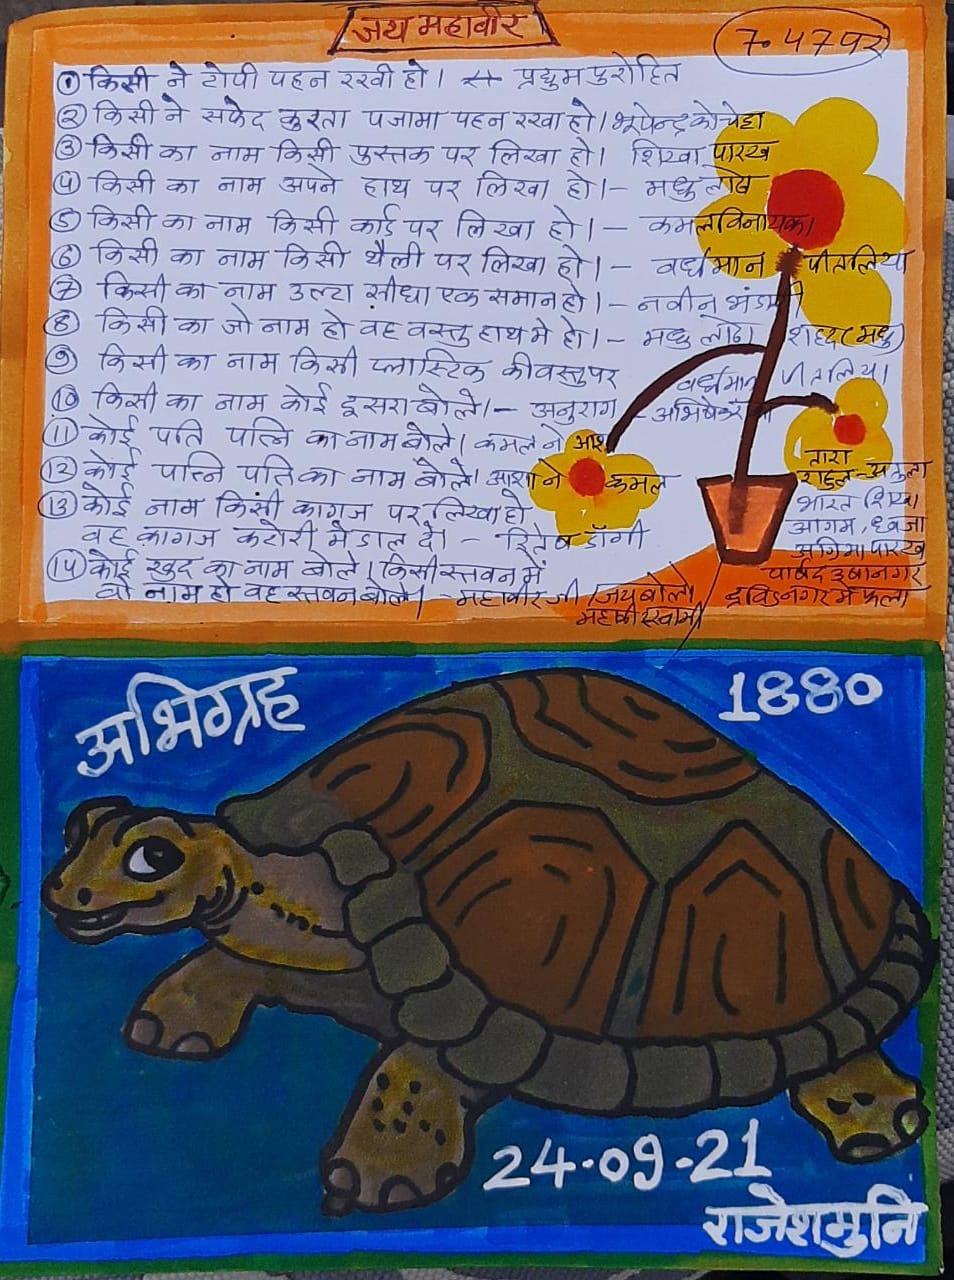 जय महावीर
7.47 पर
① किसी ने टोपी पहन रखी हो। प्रद्युम पुरोहित
② किसी ने सफेद कुरता पजामा पहन रखा हो। भूपेन्द्र कोचेटा
③ किसी का नाम किसी पुस्तक पर लिखा हो। शिखा पारख
④ किसी का नाम अपने हाथ पर लिखा हो।- मधु लोढा
⑤ किसी का नाम किसी कार्ड पर लिखा हो।- कमलविनायका
⑥ किसी का नाम किसी थैली पर लिखा हो।- वर्धमान पीतलिया
⑦ किसी का नाम उल्टा सीधा एक समान हो।- नवीन भंडारी
⑧ किसी का जो नाम हो वह वस्तु हाथ मे हो।- मधु लोढा शहद (मधु)
⑨ किसी का नाम किसी प्लास्टिक की वस्तु पर वर्धमान पीतलिया
⑩ किसी का नाम कोई दूसरा बोले।- अनुराग - अभिषेक
⑪ कोई पति पत्नि का नाम बोले। कमल ने आशा
⑫ कोई पत्नि पति का नाम बोले। आशा ने कमल
⑬ कोई नाम किसी कागज पर लिखा हो
वह कागज कटोरी में डाल दे। - रितेष डाँगी
⑭ कोई खुद का नाम बोले। किसी स्तवन में
वो नाम हो वह स्तवन बोले। - महावीर जी (जय बोलो
महावीर स्वामी
तारा
राहुल-
भारत शिखा
आगम, ध्वजा
अग्रिमा पारख
पार्षद उषानगर
द्रविडनगर में फला
अभिग्रह
1880
24-09-21
राजेशमुनि